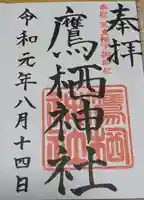 奉拝
鷹栖神社
令和元年八月十四日